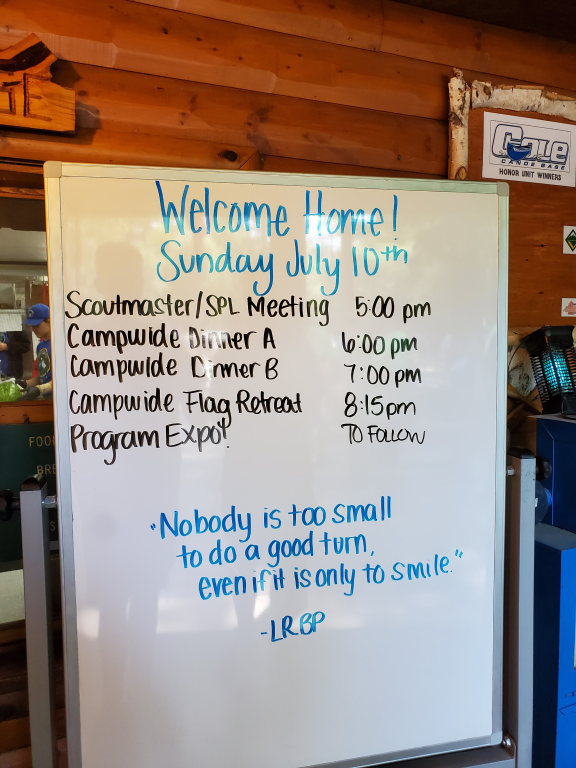 Cole
CANOE BASE
HONOR UNIT WINNERS
Welcome Home!
Sunday July 10th
Scoutmaster/SPL Meeting 5:00 pm
Campwide Dinner A 6:00 pm
Campwide Dinner B 7:00 pm
Campwide Flag Retreat 8:15pm
Program Expo! TO FOLLOW
FOO
BRE
"Nobody is too small
to do a good turn,
even if it is only to smile."
-LRBP